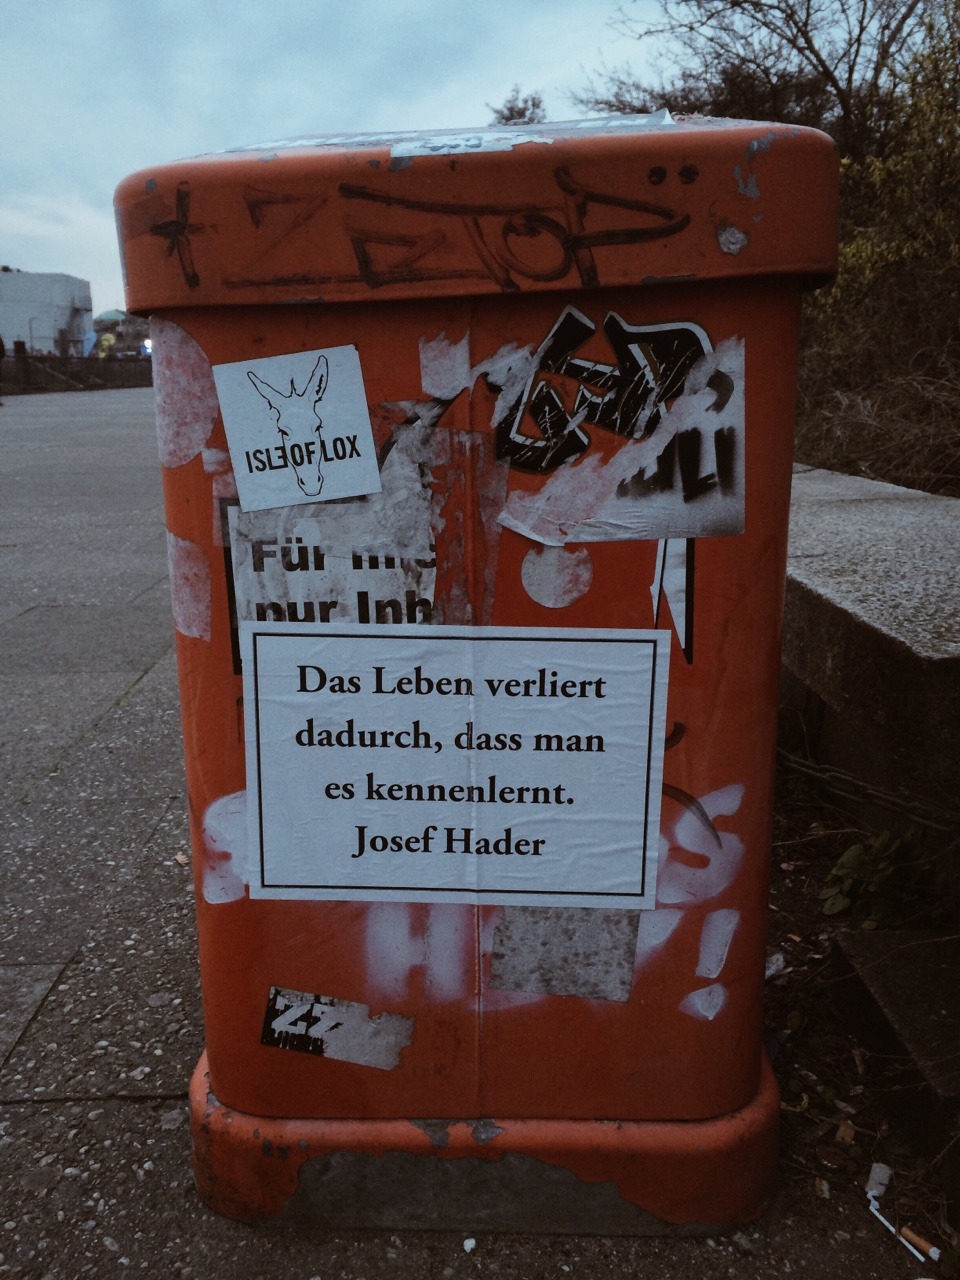 ISLE OF LOX
Für
nur
Das Leben verliert
dadurch, dass man
es kennenlernt.
Josef Hader
ZZ